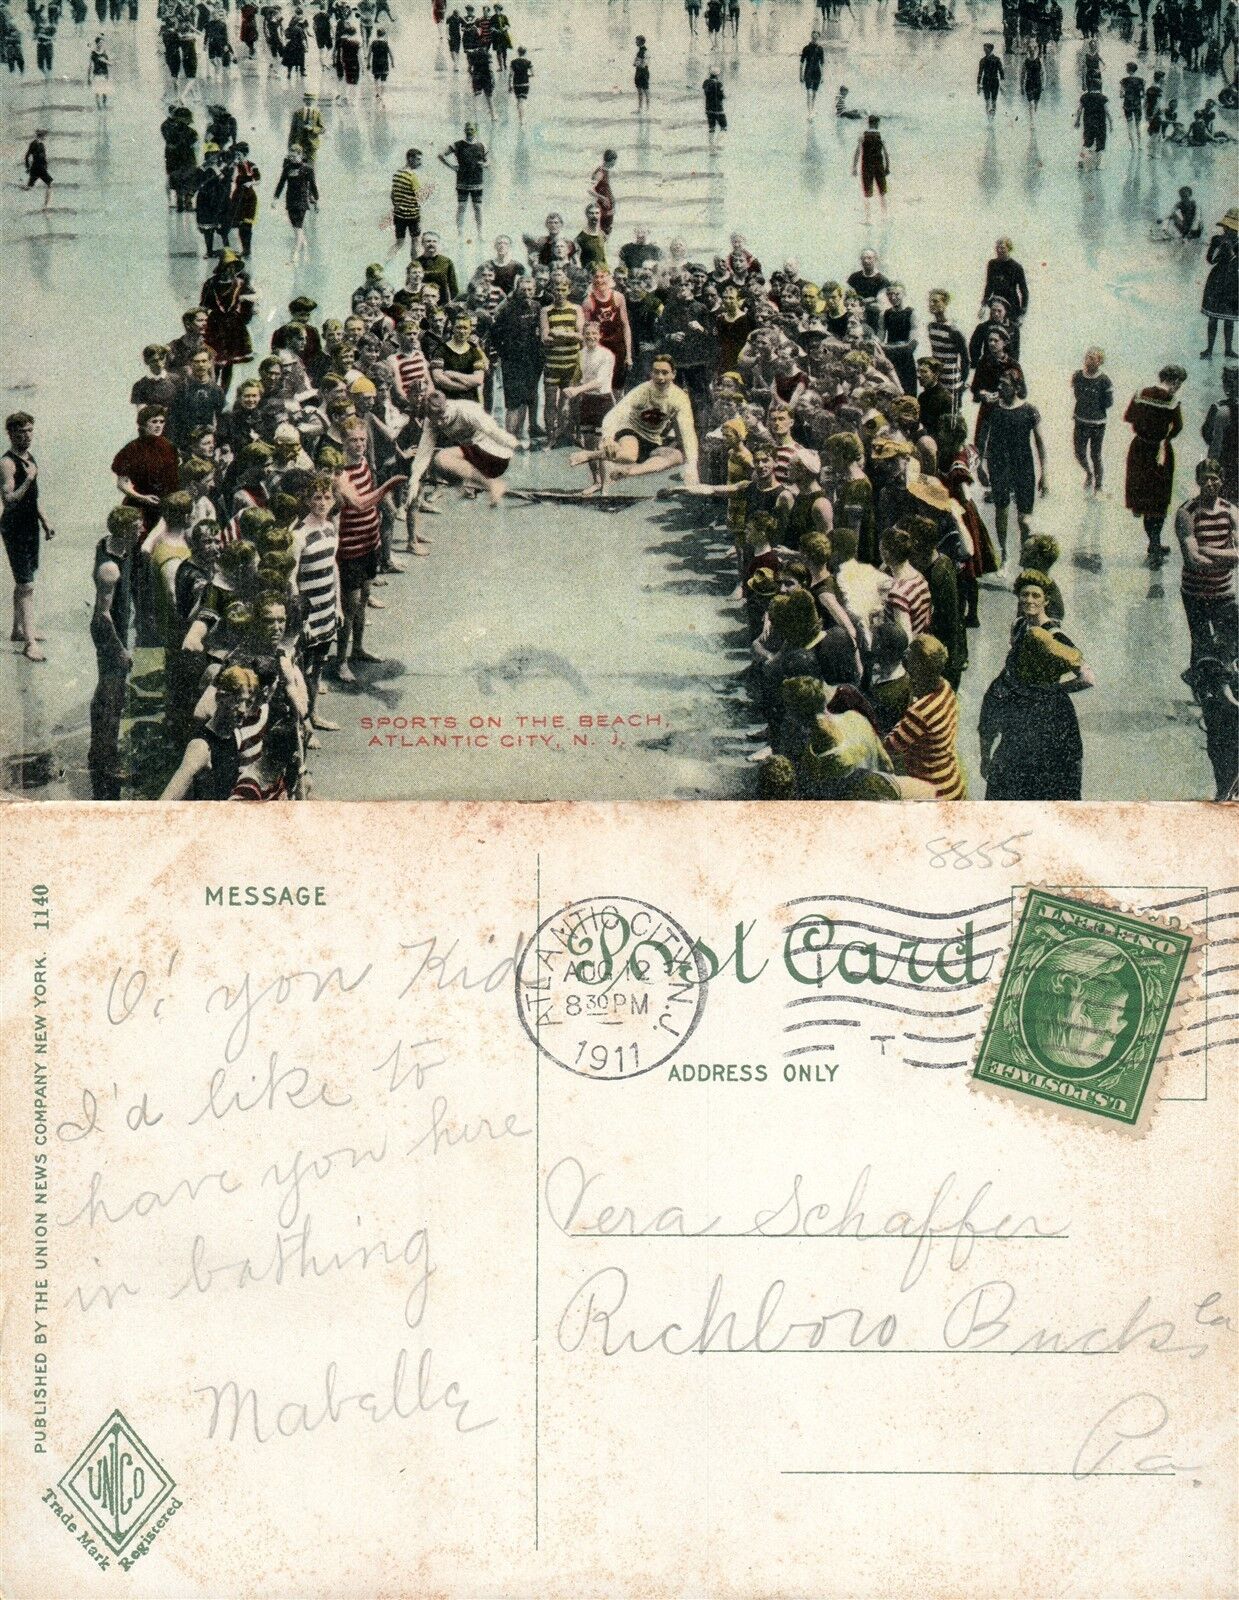 SPORTS ON THE BEACH,
ATLANTIC CITY, N. J.
8855
MESSAGE
Post Card
ADDRESS ONLY
ATLANTIC CITY, N.J.
AUG 12
8 30 PM
1911
T
ONE CENT
U.S. POSTAGE
O! you Kid
I'd like to
have you here
in bathing
Mabelle
Vera Schaffer
Richboro Bucks Co
Pa.
PUBLISHED BY THE UNION NEWS COMPANY NEW YORK. 1140
UNICO
Trade Mark Registered